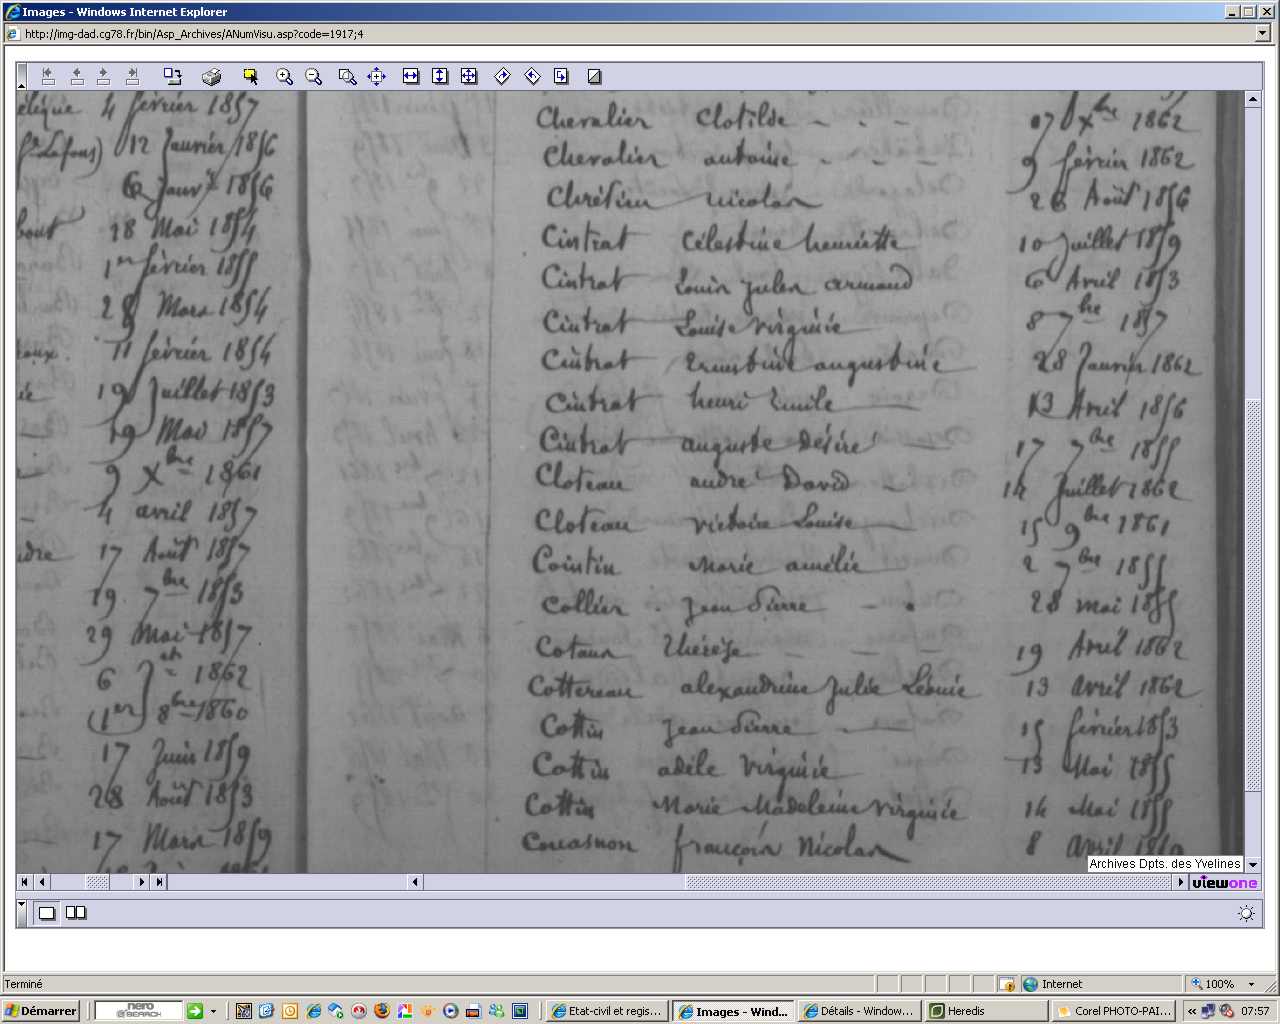 Images - Windows Internet Explorer
http://img-dad.cg78.fr/bin/Asp_Archives/ANumVisu.asp?code=1917;4
élique 4 février 1857
12 Janvier 1856
6 Janvr 1856
bout 28 Mai 1854
1er février 1855
28 Mars 1854
oux. 11 février 1854
ie 19 Juillet 1853
19 Mai 1857
9 Xbre 1861
4 avril 1857
dre 17 Août 1857
19 7bre 1853
29 Mai 1857
6 1862
1er 8bre 1860
17 Juin 1859
28 Août 1853
17 Mars 1859
Chevalier Clotilde - - - 17 Xbre 1862
Chevalier antoine - - - 9 février 1862
Chrétien nicolas 26 Août 1856
Cintrat Célestine henriette 10 Juillet 1859
Cintrat Louis Jules armand 6 Avril 1853
Cintrat Louise virginie 8 7bre 1857
Cintrat Ernestine augustine 28 Janvier 1862
Cintrat henri Emile 13 Avril 1856
Cintrat auguste Désiré 17 7bre 1855
Cloteau andré David - 14 Juillet 1862
Cloteau victoire Louise 15 9bre 1861
Cointin Marie amélie 2 7bre 1855
Collier Jean Pierre - 28 mai 1855
Thérèse - - - 19 Avril 1862
Cottereau alexandrine Julie Léonie 13 avril 1862
Cottin Jean Pierre 15 février 1853
Cottin adèle Virginie 13 Mai 1855
Cottin Marie Madeleine Virginie 14 Mai 1855
Coucasnon françois Nicolas 8 Avril
Archives Dpts. des Yvelines
viewone
Terminé
Internet
100%
Démarrer
nero
SEARCH
Etat-civil et regis...
Images - Wind...
Détails - Window...
Heredis
Corel PHOTO-PAI...
07:57